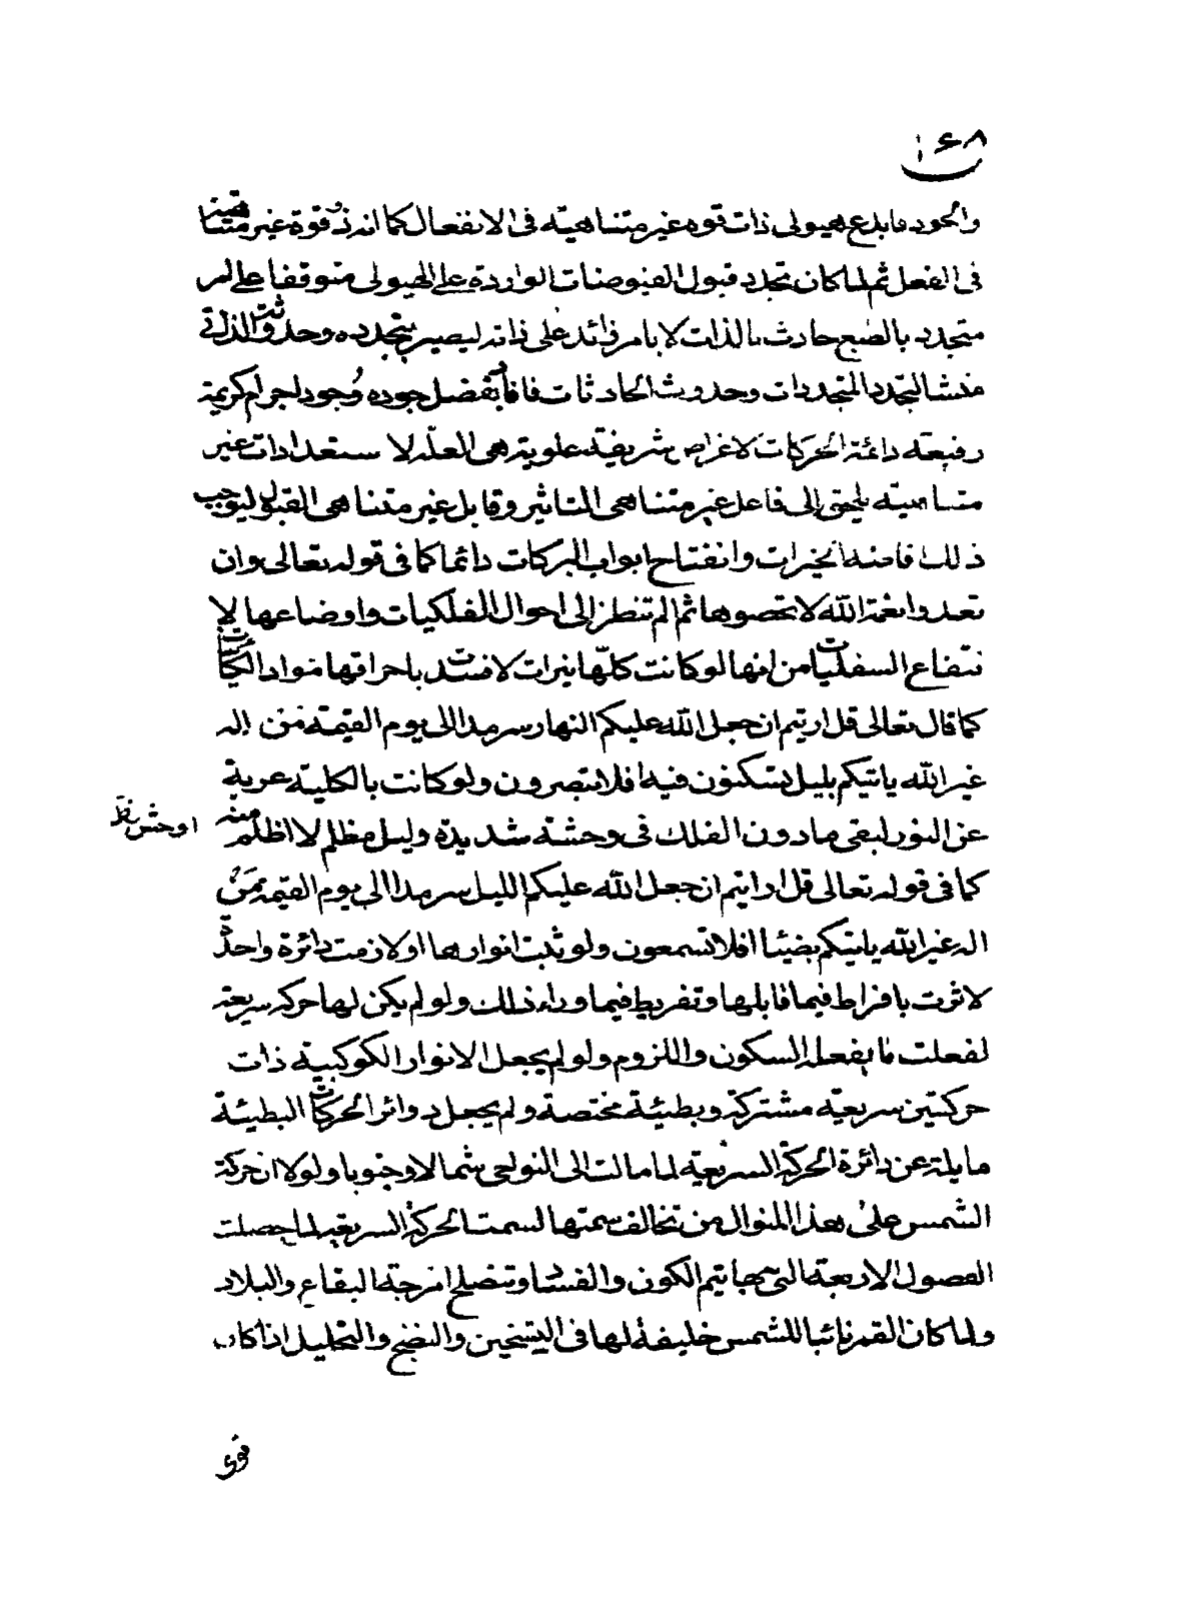 ١٦٨
والجود فابدع هيولى ذات قوة غير متناهية فى الانفعال كما انه ذو قوة غير متناهية
فى الفعل ثم لما كان تجدد قبول الفيوضات الواردة على الهيولى متوقفا على امر
متجدد بالطبع حادث بالذات لا بامر زائد على ذاته ليصير بتجدده وحدوثه الذاتى
منشا لتجدد المتجددات وحدوث الحادثات فافاد بفضل جوده وجود اجرام كريمة
رفيعة دائمة الحركات لاغراض شريفة علوية هى العلة لاستعدادات غير
متناهية يلحق إلى فاعل غير متناهى التاثير وقابل غير متناهى القبول ليوجب
ذلك افاضة الخيرات وانفتاح ابواب البركات دائما كما فى قوله تعالى وان
تعدوا نعمة الله لا تحصوها ثم الم تنظر إلى احوال الفلكيات واوضاعها لا
نتفاع السفليات من انها لو كانت كلها نيرات لافسدت باحراقها مواد الكائنات
كما قال تعالى قل ارايتم ان جعل الله عليكم النهار سرمدا الى يوم القيمة من اله
غير الله ياتيكم بليل تسكنون فيه افلا تبصرون ولو كانت بالكلية عرية
عن النور لبقى ما دون الفلك فى وحشة شديدة وليل مظلم لا اظلم منه
اوحش نظ
كما فى قوله تعالى قل ارايتم ان جعل الله عليكم الليل سرمدا الى يوم القيمة من
اله غير الله ياتيكم بضياء افلا تسمعون ولو ثبت انوارها او لازمت دائرة واحدة
لاثرت بافراط فيما قابلها وتفريط فيما وراء ذلك ولو لم يكن لها حركة سريعة
لفعلت ما يفعله السكون واللزوم ولو لم يجعل الانوار الكوكبية ذات
حركتين سريعة مشتركة وبطيئة مختصة ولم يجعل دوائر الحركات البطيئة
مايلة عن دائرة الحركة السريعة لما مالت الى النواحى شمالا وجنوبا ولولا ان حركة
الشمس على هذا المنوال من تخالف سمتها لسمت الحركة السريعة لما حصلت
الفصول الاربعة التى بها يتم الكون والفساد وتنصلح امزجة البقاع والبلاد
ولما كان القمر نائبا للشمس خليفة لها فى التسخين والنضج والتحليل اذا كان
قوى